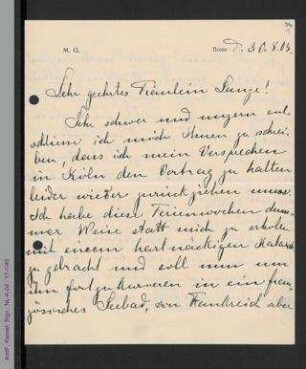 M. G.
Bonn d. 30. 8. 04.
Sehr geehrtes Fräulein Lange!
Sehr schwer und ungern ent
schliesse ich mich Ihnen zu schrei
ben, dass ich mein Versprechen
in Köln den Vortrag zu halten
leider wieder zurückziehen muss.
Ich habe diese Ferienwochen dum
mer Weise statt mich zu erholen
mit einem hartnäckigen Katarrh
zugebracht und soll nun um
ihn fortzukurieren in ein fran
zösisches Seebad, von Frankreich aber